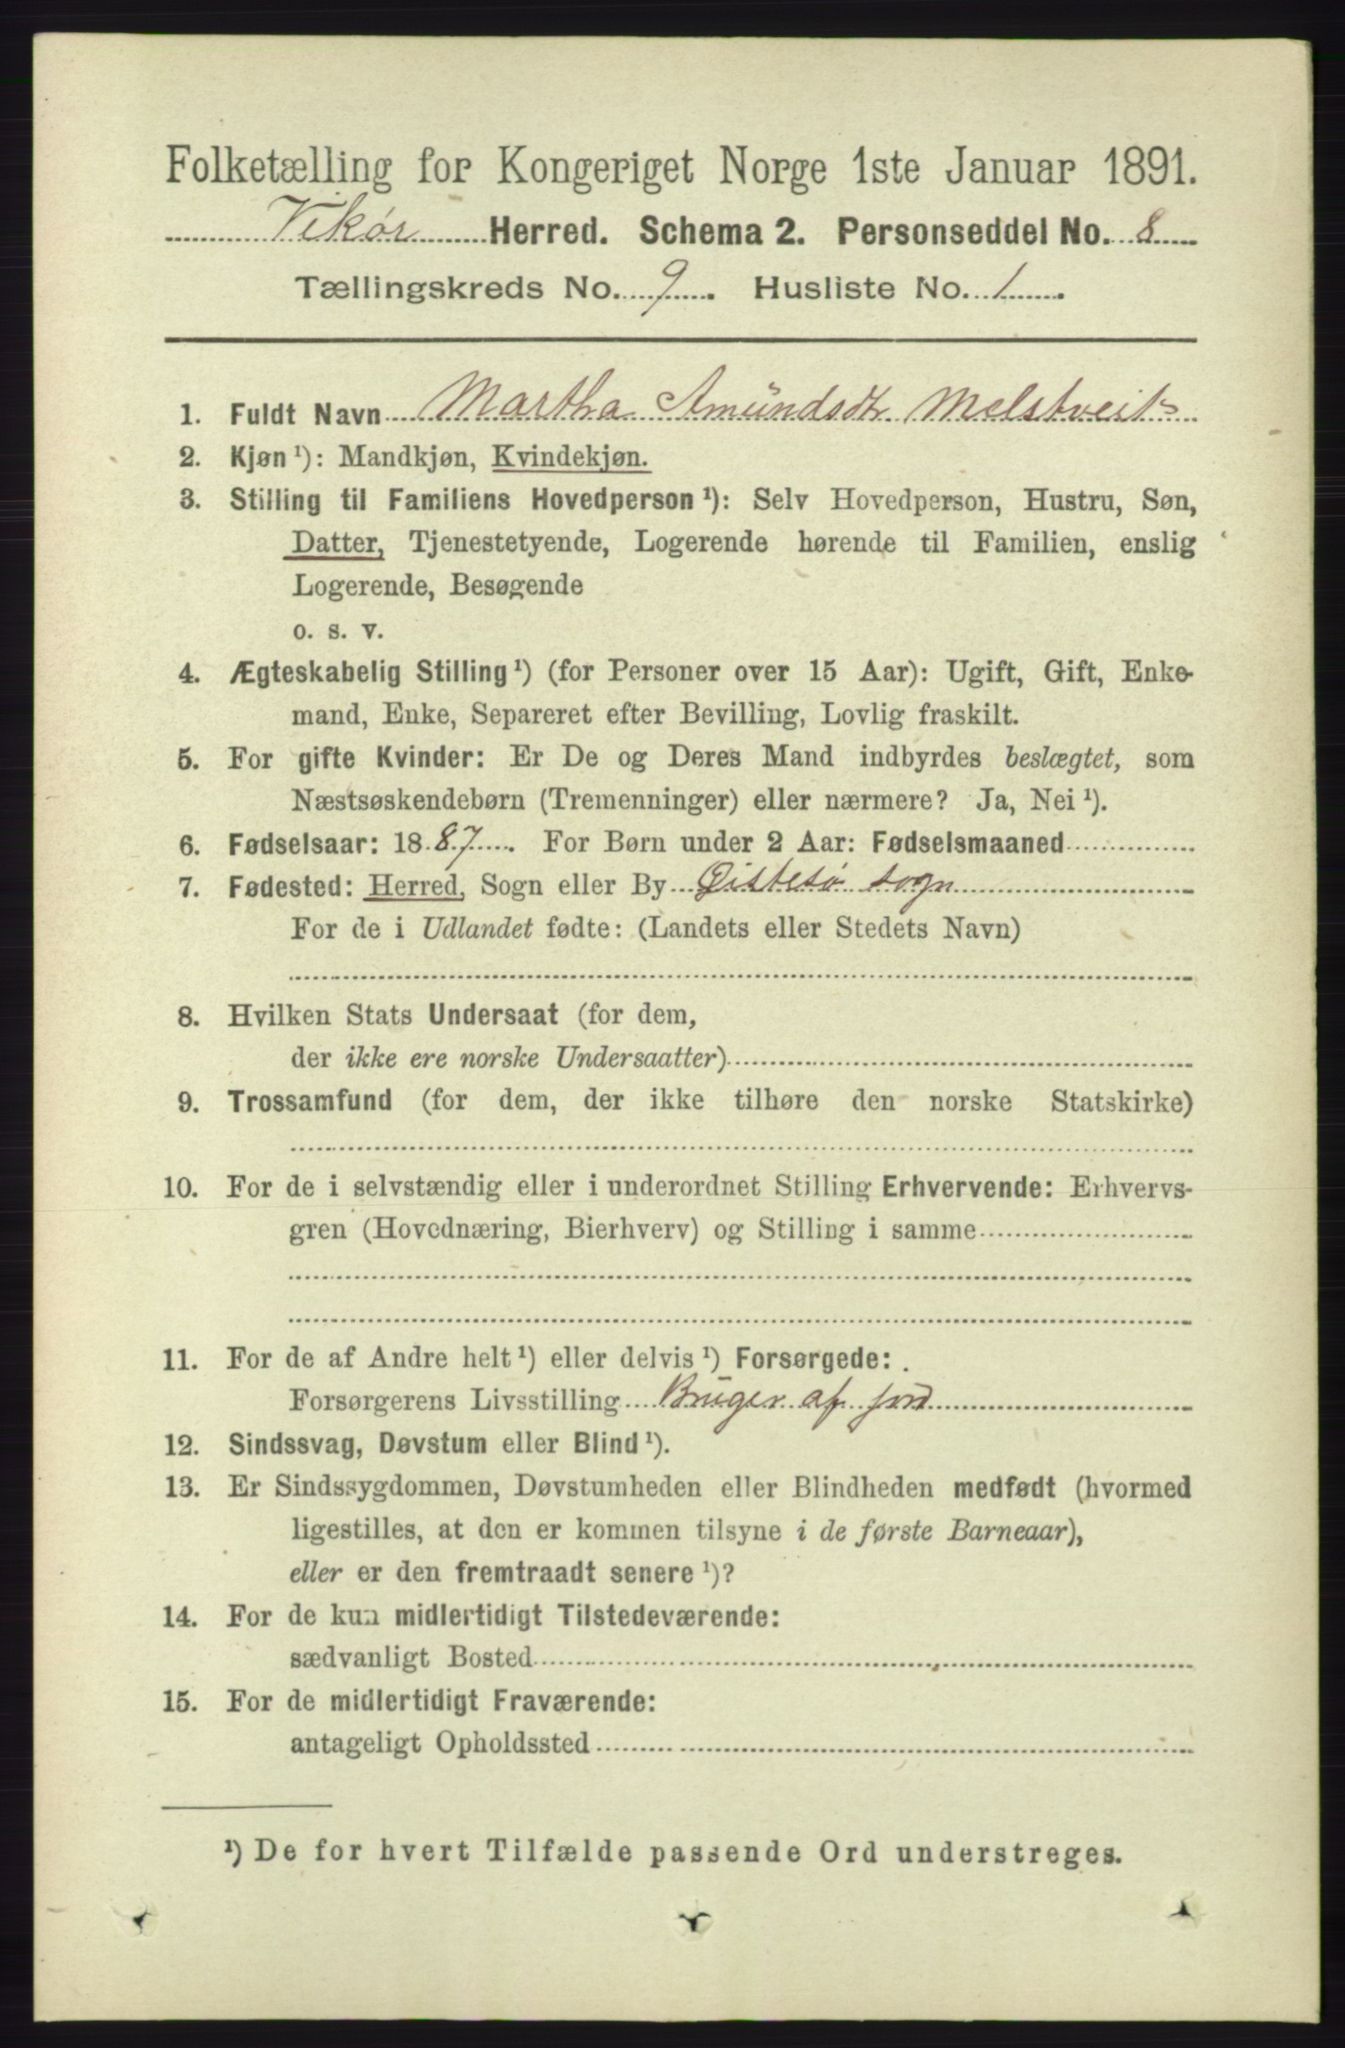 Folketælling for Kongeriget Norge 1ste Januar 1891.
Vikør Herred. Schema 2. Personseddel No. 8
Tællingskreds No. 9. Husliste No. 1.
1. Fuldt Navn Martha Amundsdtr Melstveit
2. Kjøn¹): Mandkjøn, Kvindekjøn.
3. Stilling til Familiens Hovedperson¹): Selv Hovedperson, Hustru, Søn,
Datter, Tjenestetyende, Logerende hørende til Familien, enslig
Logerende, Besøgende
o. s. v.
4. Ægteskabelig Stilling¹) (for Personer over 15 Aar): Ugift, Gift, Enke-
mand, Enke, Separeret efter Bevilling, Lovlig fraskilt.
5. For gifte Kvinder: Er De og Deres Mand indbyrdes beslægtet, som
Næstsøskendebørn (Tremenninger) eller nærmere? Ja, Nei¹).
6. Fødselsaar: 1887. For Børn under 2 Aar: Fødselsmaaned
7. Fødested: Herred, Sogn eller By Østesø sogn
For de i Udlandet fødte: (Landets eller Stedets Navn)
8. Hvilken Stats Undersaat (for dem,
der ikke ere norske Undersaatter)
9. Trossamfund (for dem, der ikke tilhøre den norske Statskirke)
10. For de i selvstændig eller i underordnet Stilling Erhvervende: Erhvervs-
gren (Hovednæring, Bierhverv) og Stilling i samme
11. For de af Andre helt¹) eller delvis¹) Forsørgede:
Forsørgerens Livsstilling Bruger af jord
12. Sindssvag, Døvstum eller Blind¹).
13. Er Sindssygdommen, Døvstumheden eller Blindheden medfødt (hvormed
ligestilles, at den er kommen tilsyne i de første Barneaar),
eller er den fremtraadt senere¹)?
14. For de kun midlertidigt Tilstedeværende:
sædvanligt Bosted
15. For de midlertidigt Fraværende:
antageligt Opholdssted
¹) De for hvert Tilfælde passende Ord understreges.